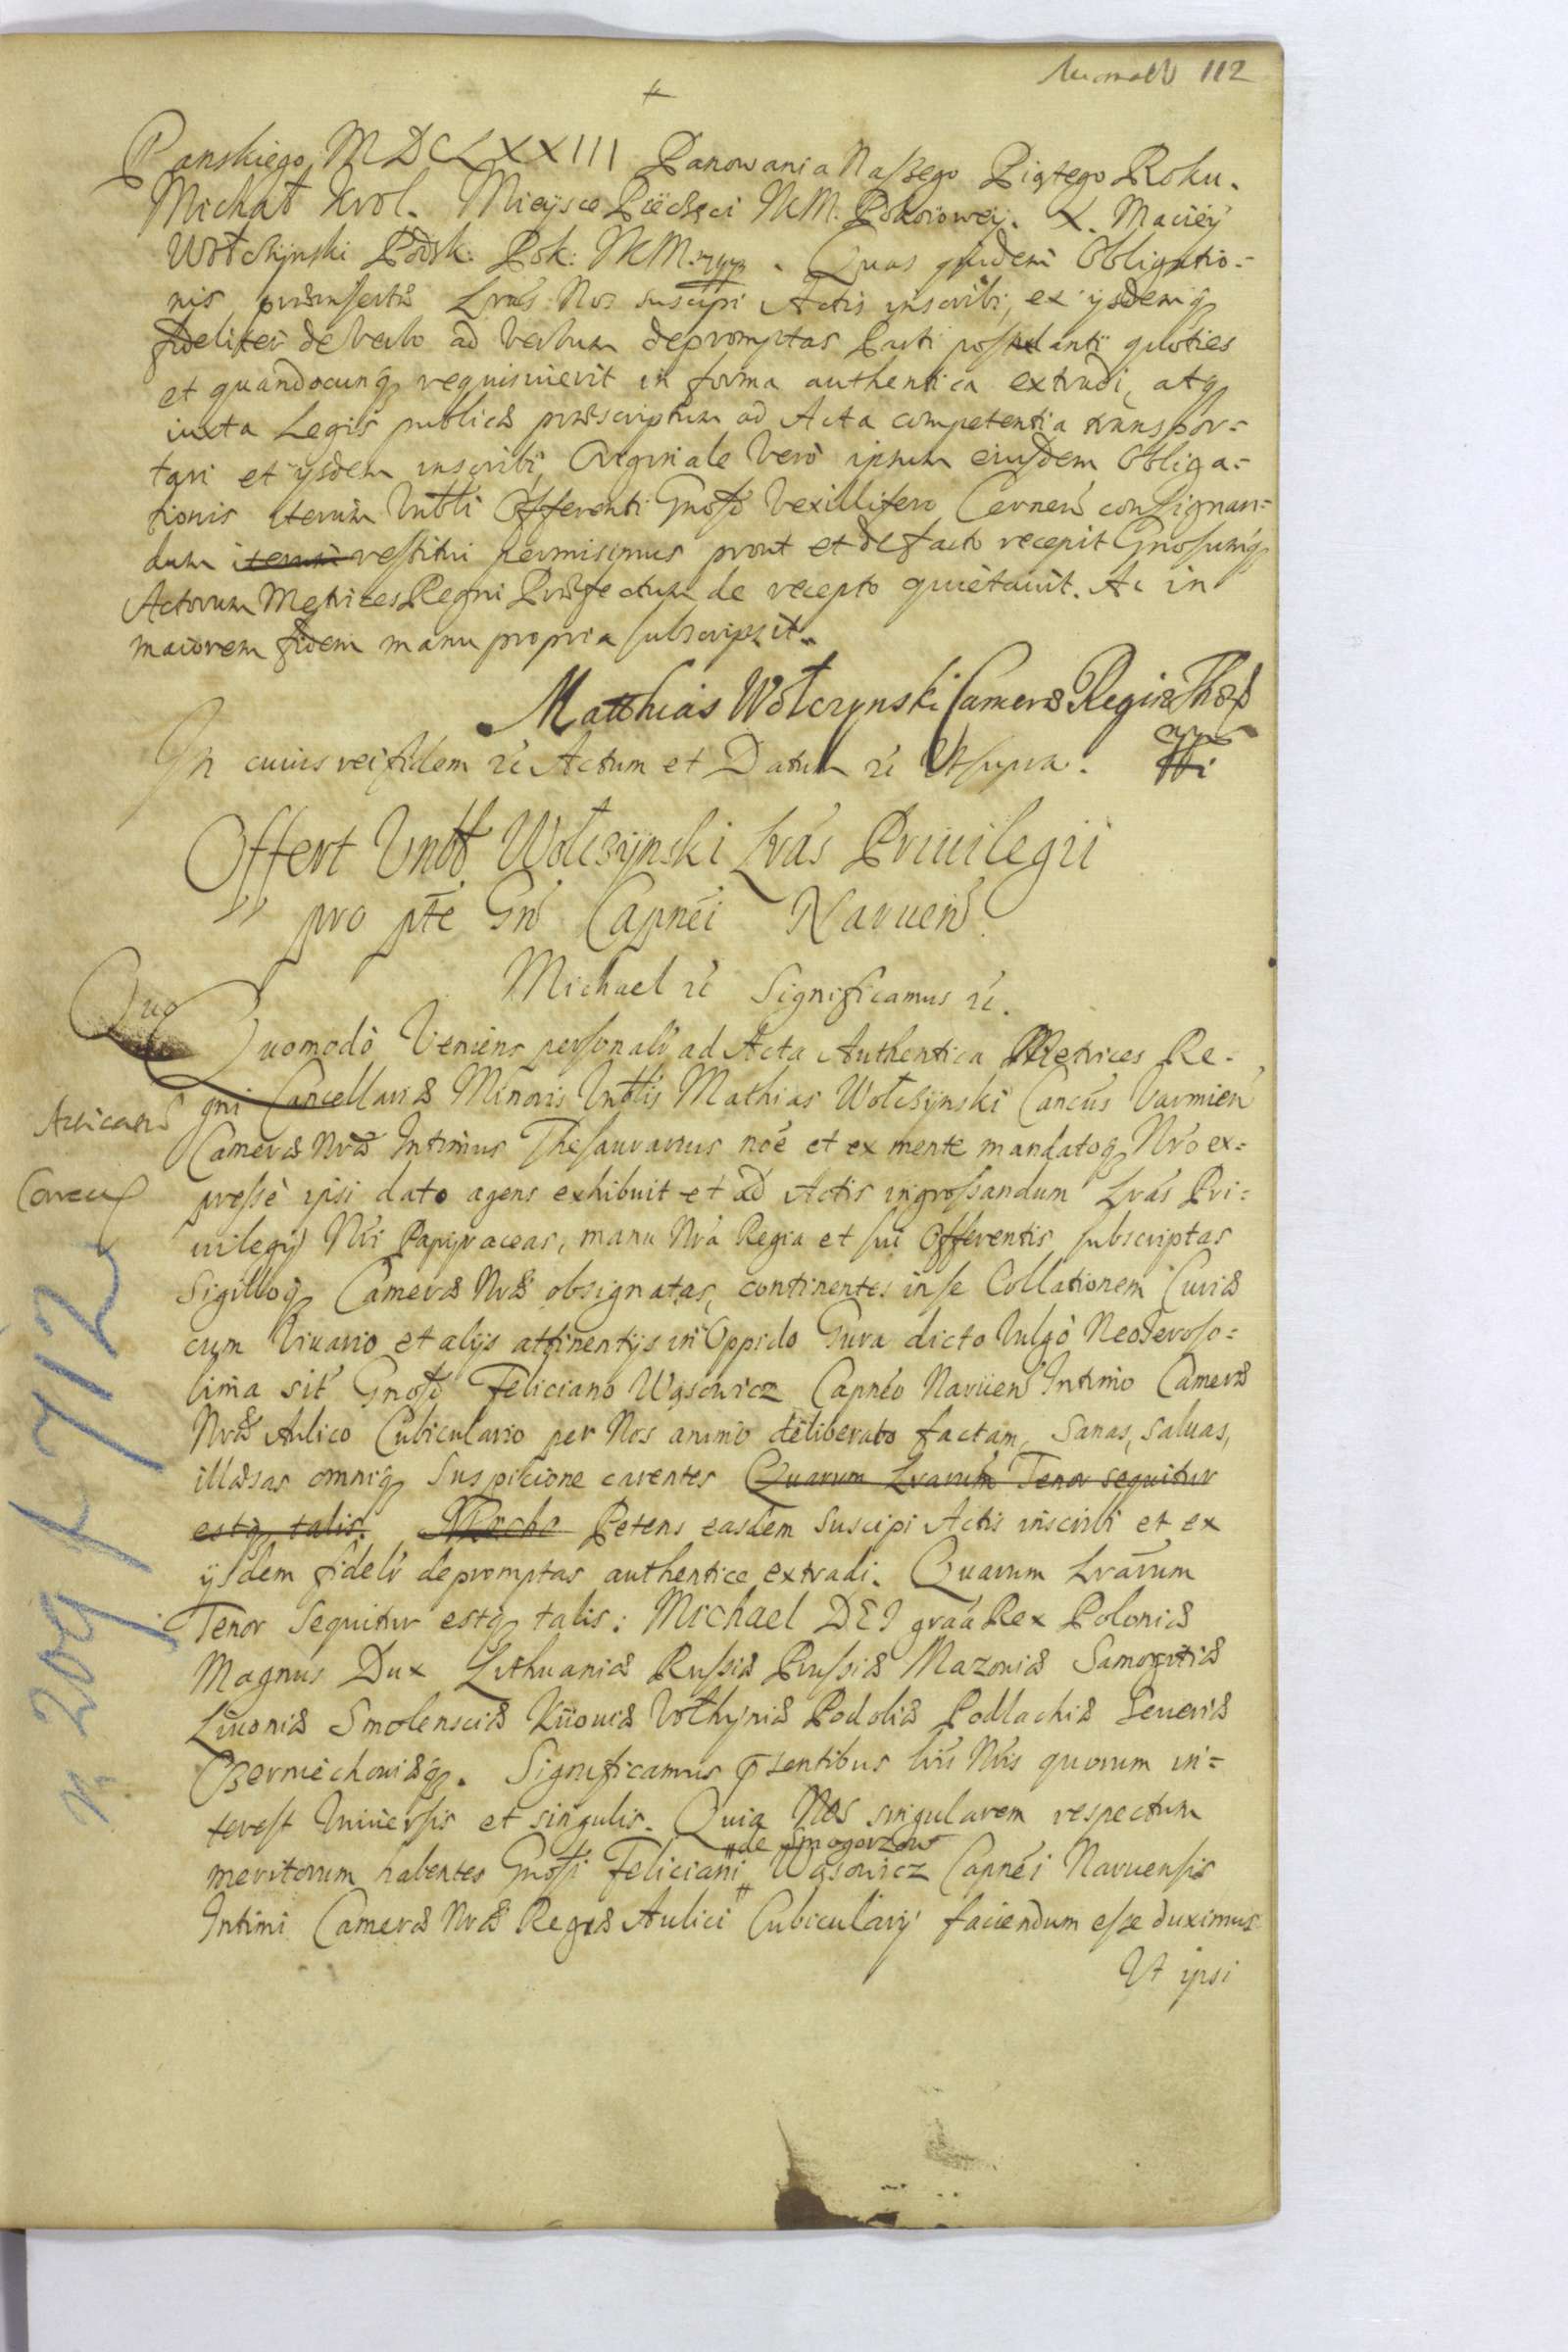 112
Panskiego MDCLXXIII Panowania Naszego Piątego Roku.
Michał Krol. Mieysce Piećzęci JKM. Pokoiowey. X. Maciey
Wołczÿnski Podsk: Pok: JKM. mpp. Quas quidem Obligatio=
nis præinsertæ Lrãs Nos suscipi Actis inscribi, ex ijsdemq3
fideliter de verbo ad verbum depromptas Parti postulanti quoties
et quandocunq3 requisiuerit in forma authentica extradi, atq3
iuxta Legis publicæ præscriptum ad Acta competentia transpor=
tari et ijsdem inscribi, Originale vero ipsum eiusdem Obliga=
tionis iterum Vnbli Offerenti Gnoso Vexillifero Cernen consignan=
dum iterum restitui permisimus prout et de facto recepit Gnosumq3
Actorum Metrices Regni Præfectum de recepto quietauit. Ac in
maiorem fidem manu propria subscripsit.
Matthias Wołczynski Cameræ Regiæ Thes
mp
In cuius rei fidem etc Actum et Datum etc Ut supra.
Offert Vnbl Wołczÿnski Lrãs Priuilegii
pro pte Gn Capnei Naruen.
Michael etc Significamus etc.
Quo
Quomodo Veniens personalr ad Acta Authentica Metrices Re=
gni Cancellariæ Minoris Vnblis Mathias Wołczÿnski Cancus Varmien
Cameræ Nræ Intimus Thesaurarius noe et ex mente mandatoq3 Nro ex=
presse ipsi dato agens exhibuit et ad Actis ingrossandum Lrãs Pri=
uilegij Nri Papyraceas, manu Nra Regia et sui Offerentis subscriptas
Sigilloq3 Cameræ Nræ obsignatas, continentes in se Collationem Curiæ
cum Viuario et alijs attinentijs in Oppido Gura dicto Vulgo Neoieroso=
lima sit Gnoso Feliciano Wąsowicz Capneo Naruen Intimo Cameræ
Nræ Aulico Cubiculario per Nos animo deliberato factam, Sanas, Saluas,
illæsas omniq3 Suspicione carentes Quarum Lrarum Tenor sequitur
estq3 talis. Petens easdem Suscipi Actis inscribi et ex
ijsdem fidelr depromptas authentice extradi. Quarum Lrarum
Tenor Sequitur estq3 talis: Michael DEI graa Rex Poloniæ
Magnus Dux Lithuaniæ Russiæ Prussiæ Mazouiæ Samogitiæ
Liuoniæ Smolensciæ Kiiouiæ Vołhyniæ Podoliæ Podlachiæ Seueriæ
Czerniechouiæq3. Significamus psentibus lris Nris quorum in=
terest Vniuersis et singulis. Quia Nos singularem respectum
de Smogorzow
meritorum habentes Gnosi Feliciani Wąsowicz Capnei Naruensis
Intimi Cameræ Nræ Regiæ Aulici Cubicularij faciendum esse duximus
Ut ipsi
n 209 f 712